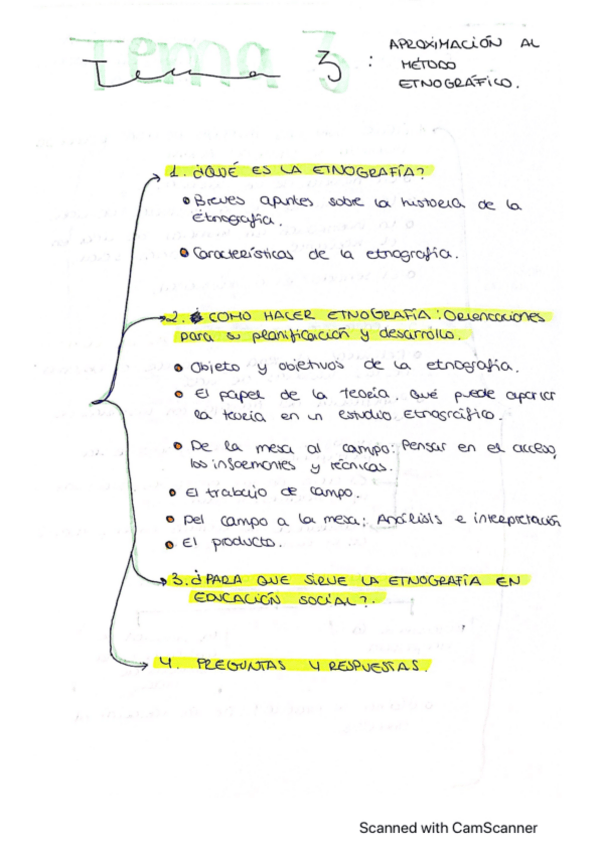 Tema 3 :
APROXIMACIÓN AL
MÉTODO
ETNOGRÁFICO.
1. ¿QUÉ ES LA ETNOGRAFÍA?
• Breves apuntes sobre la historia de la
etnografía.
• Características de la etnografía.
2. COMO HACER ETNOGRAFÍA: Orientaciones
para su planificación y desarrollo.
• Objeto y objetivos de la etnografía.
• El papel de la teoría. Qué puede aportar
la teoría en un estudio etnográfico.
• De la mesa al campo: Pensar en el acceso,
los informantes y técnicas.
• El trabajo de campo.
• Del campo a la mesa: Análisis e interpretación
• El producto.
3. ¿PARA QUE SIRVE LA ETNOGRAFÍA EN
EDUCACIÓN SOCIAL?.
4. PREGUNTAS Y RESPUESTAS.
Scanned with CamScanner